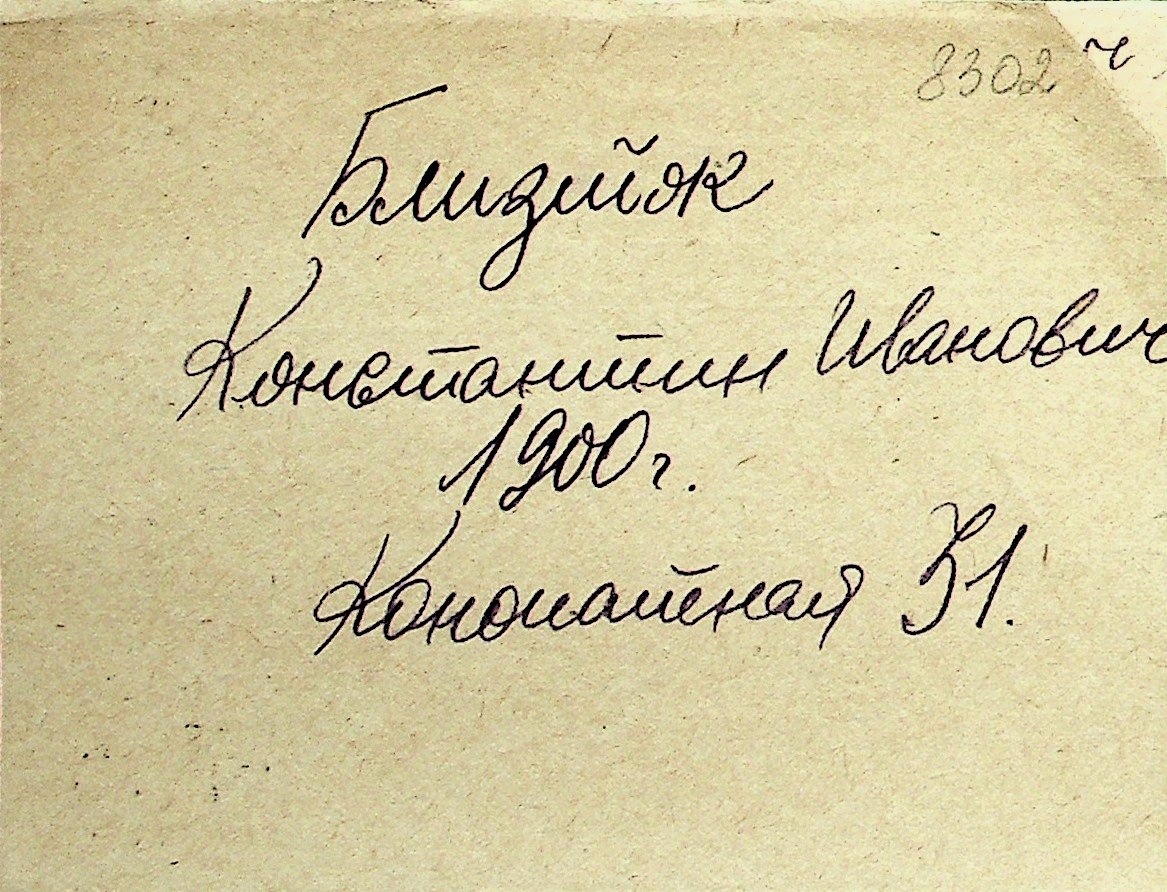 8302
Близийяк
Константин Иванович
1900г.
Конопатная 31.